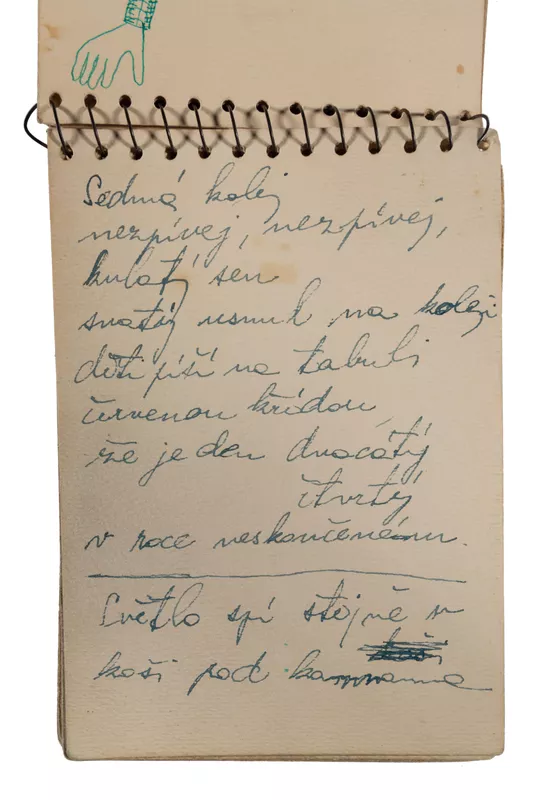 Sedmá kolej
nezpívej, nezpívej,
kulatý sen
svatý usnul na koleji
děti píší na tabuli
červenou křídou
že je den dvacátý
čtvrtý
v roce neskončenému.
Světlo spí stojně v
koši pod kamnama